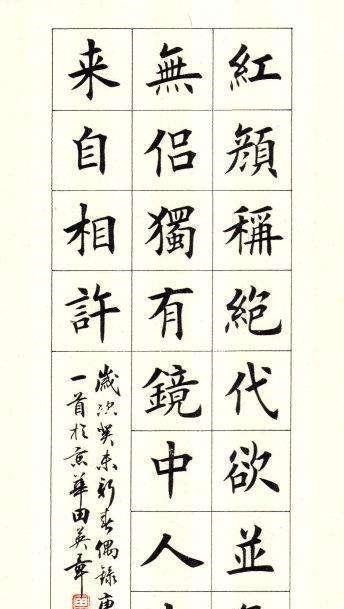 紅顏稱絕代欲並
無侶獨有鏡中人
来自相許
歲次癸未新春偶錄唐
一首於京華田英章